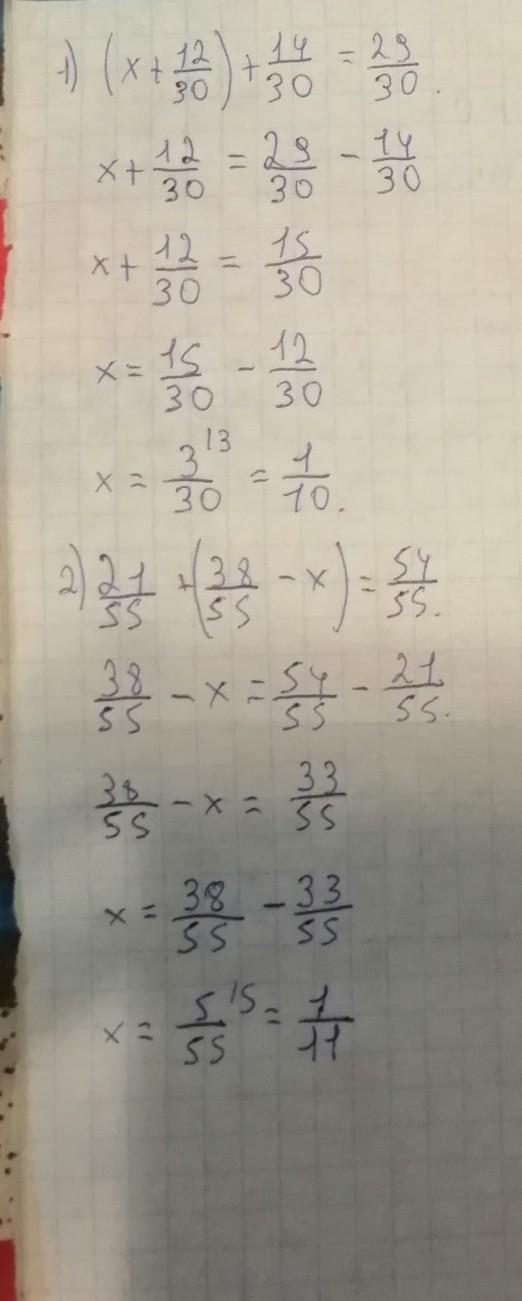 1) (x + 12/30) + 14/30 = 29/30.
x + 12/30 = 29/30 - 14/30
x + 12/30 = 15/30
x = 15/30 - 12/30
x = 3/30 |3 = 1/10.
2) 21/55 + (38/55 - x) = 54/55.
38/55 - x = 54/55 - 21/55.
38/55 - x = 33/55
x = 38/55 - 33/55
x = 5/55 |5 = 1/11